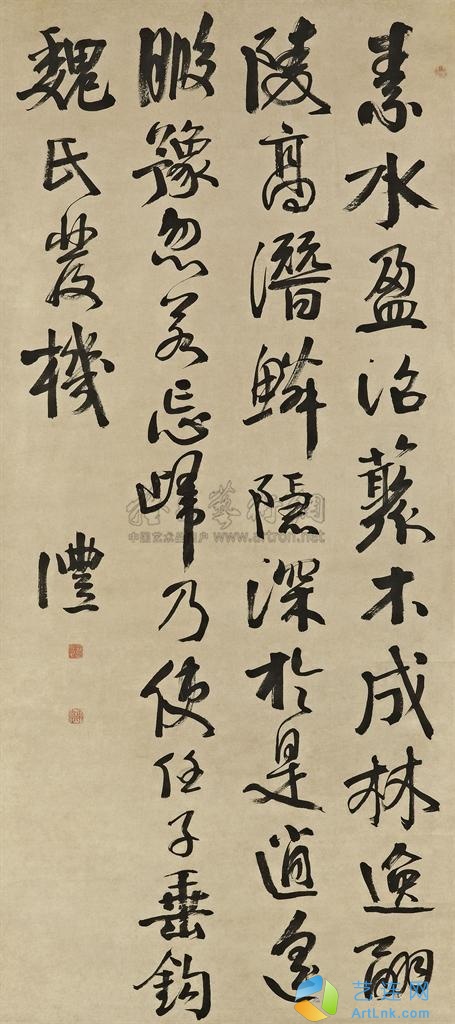 素水盈沼藂木成林逸翮
陵高潛鱗隱深於是逍遙
暇豫忽若忘歸乃使任子垂鈎
魏氏發機
澧
雅昌藝術網
中国艺术品门户 www.artron.net
ArtLnk.com